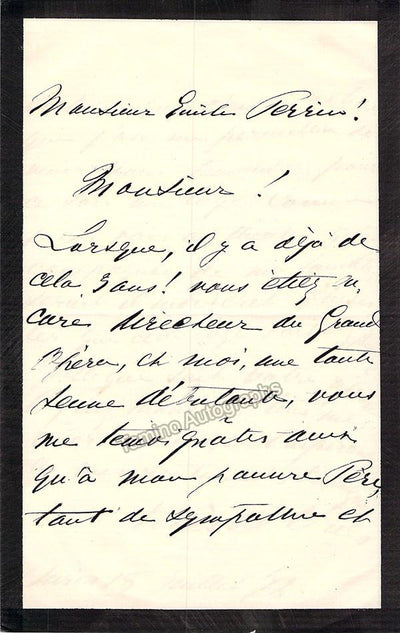 Monsieur Emile Perrin!
Monsieur !
Lorsque, il y a déjà de
cela 3 ans! vous étiez en-
core directeur du Grand
Opéra, et moi, une toute
jeune débutante, vous
me témoignâtes ainsi
qu'à mon pauvre Père,
tant de sympathie et
Tamino Autographs